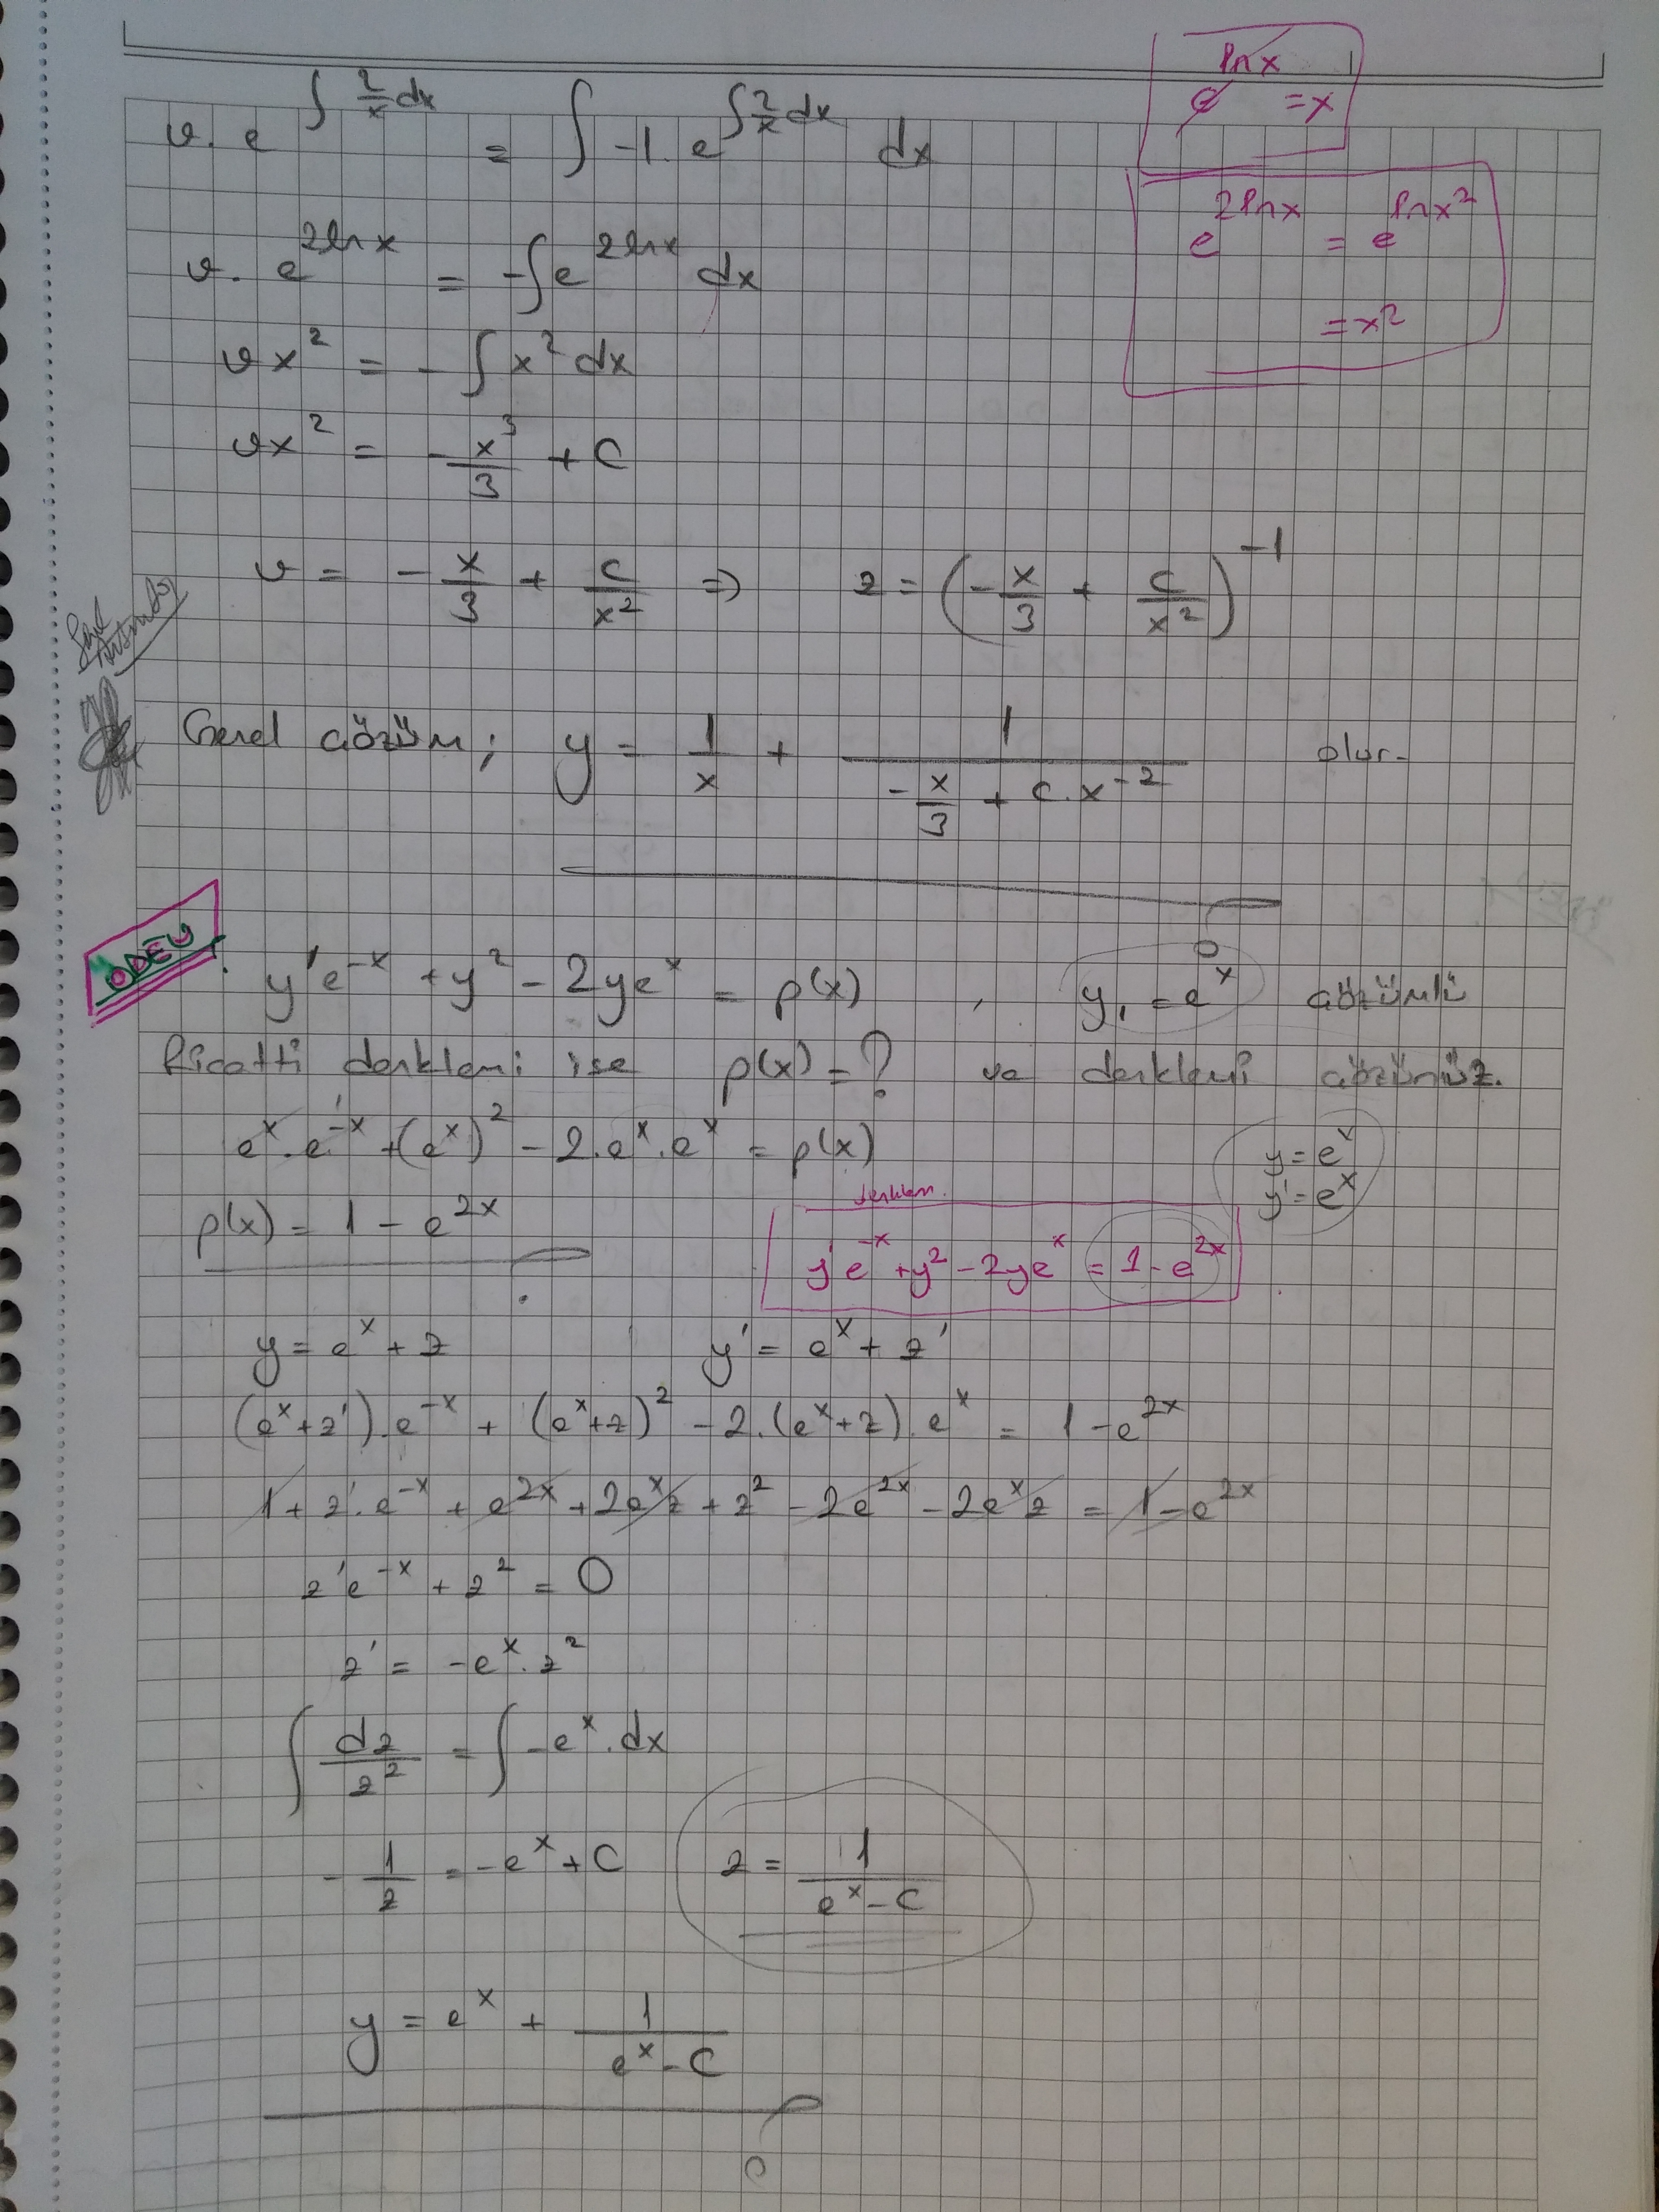 e^(lnx) = x
v. e^(∫ 2/x dx) = ∫ -1. e^(∫ 2/x dx) dx
e^(2lnx) = e^(lnx²)
= x²
v. e^(2lnx) = -∫ e^(2lnx) dx
vx² = - ∫ x² dx
vx² = - x³/3 + C
v = - x/3 + c/x² ⇒ z = (- x/3 + c/x²)^(-1)
Genel çözüm; y = 1/x + 1/(- x/3 + c.x^(-2)) olur.
ÖDEV
y'e^(-x) + y² - 2ye^x = p(x) , y₁ = e^x çözümlü
Ricatti denklemi ise p(x) = ? ve denklemi çözünüz.
e^x . e^(-x) + (e^x)² - 2.e^x.e^x = p(x)
y = e^x
y' = e^x
p(x) = 1 - e^(2x)
denklem
y'e^(-x) + y² - 2ye^x = 1 - e^(2x)
y = e^x + z y' = e^x + z'
(e^x + z').e^(-x) + (e^x + z)² - 2.(e^x + z).e^x = 1 - e^(2x)
1 + z'.e^(-x) + e^(2x) + 2e^x z + z² - 2e^(2x) - 2e^x z = 1 - e^(2x)
z'e^(-x) + z² = 0
z' = -e^x . z²
∫ dz/z² = ∫ -e^x . dx
- 1/z = -e^x + C z = 1/(e^x - C)
y = e^x + 1/(e^x - C)